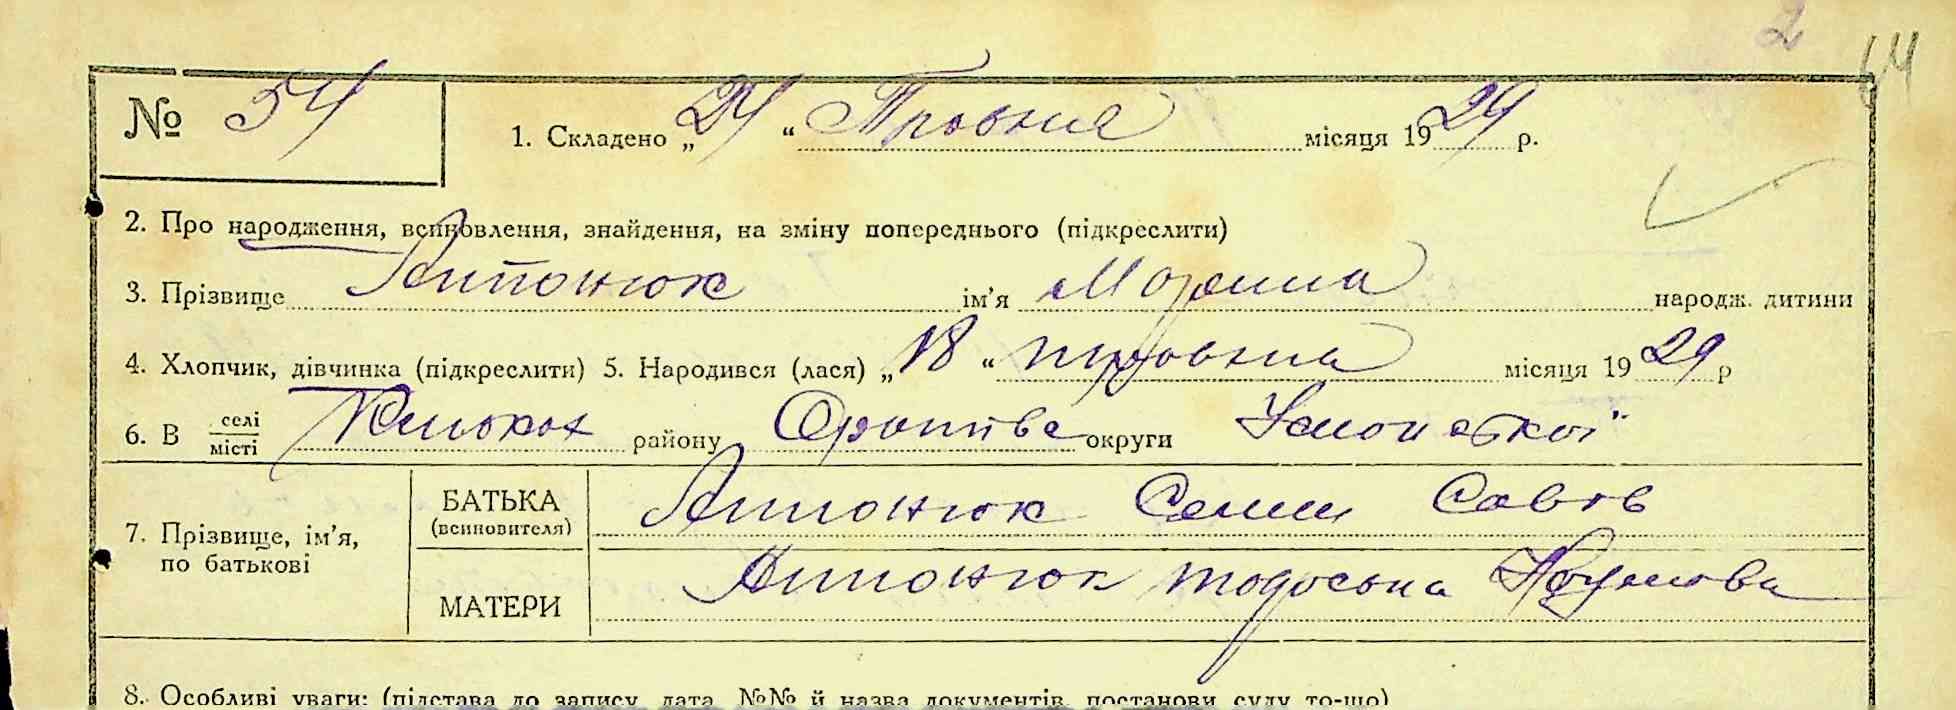 2
64
№ 54
1. Складено „24“ Травня місяця 1929 р.
2. Про народження, всиновлення, знайдення, на зміну попереднього (підкреслити)
3. Прізвище Антонюк ім’я Марина народж. дитини
4. Хлопчик, дівчинка (підкреслити) 5. Народився (лася) „18“ травня місяця 1929 р
6. В селі місті району Оратівс округи Уманської
7. Прізвище, ім’я, по батькові
БАТЬКА (всиновителя) Антонюк Семен Савов
МАТЕРИ Антонюк Тодоська Наумова
8. Особливі уваги: (підстава до запису, дата, №№ й назва документів, постанови суду то-що)